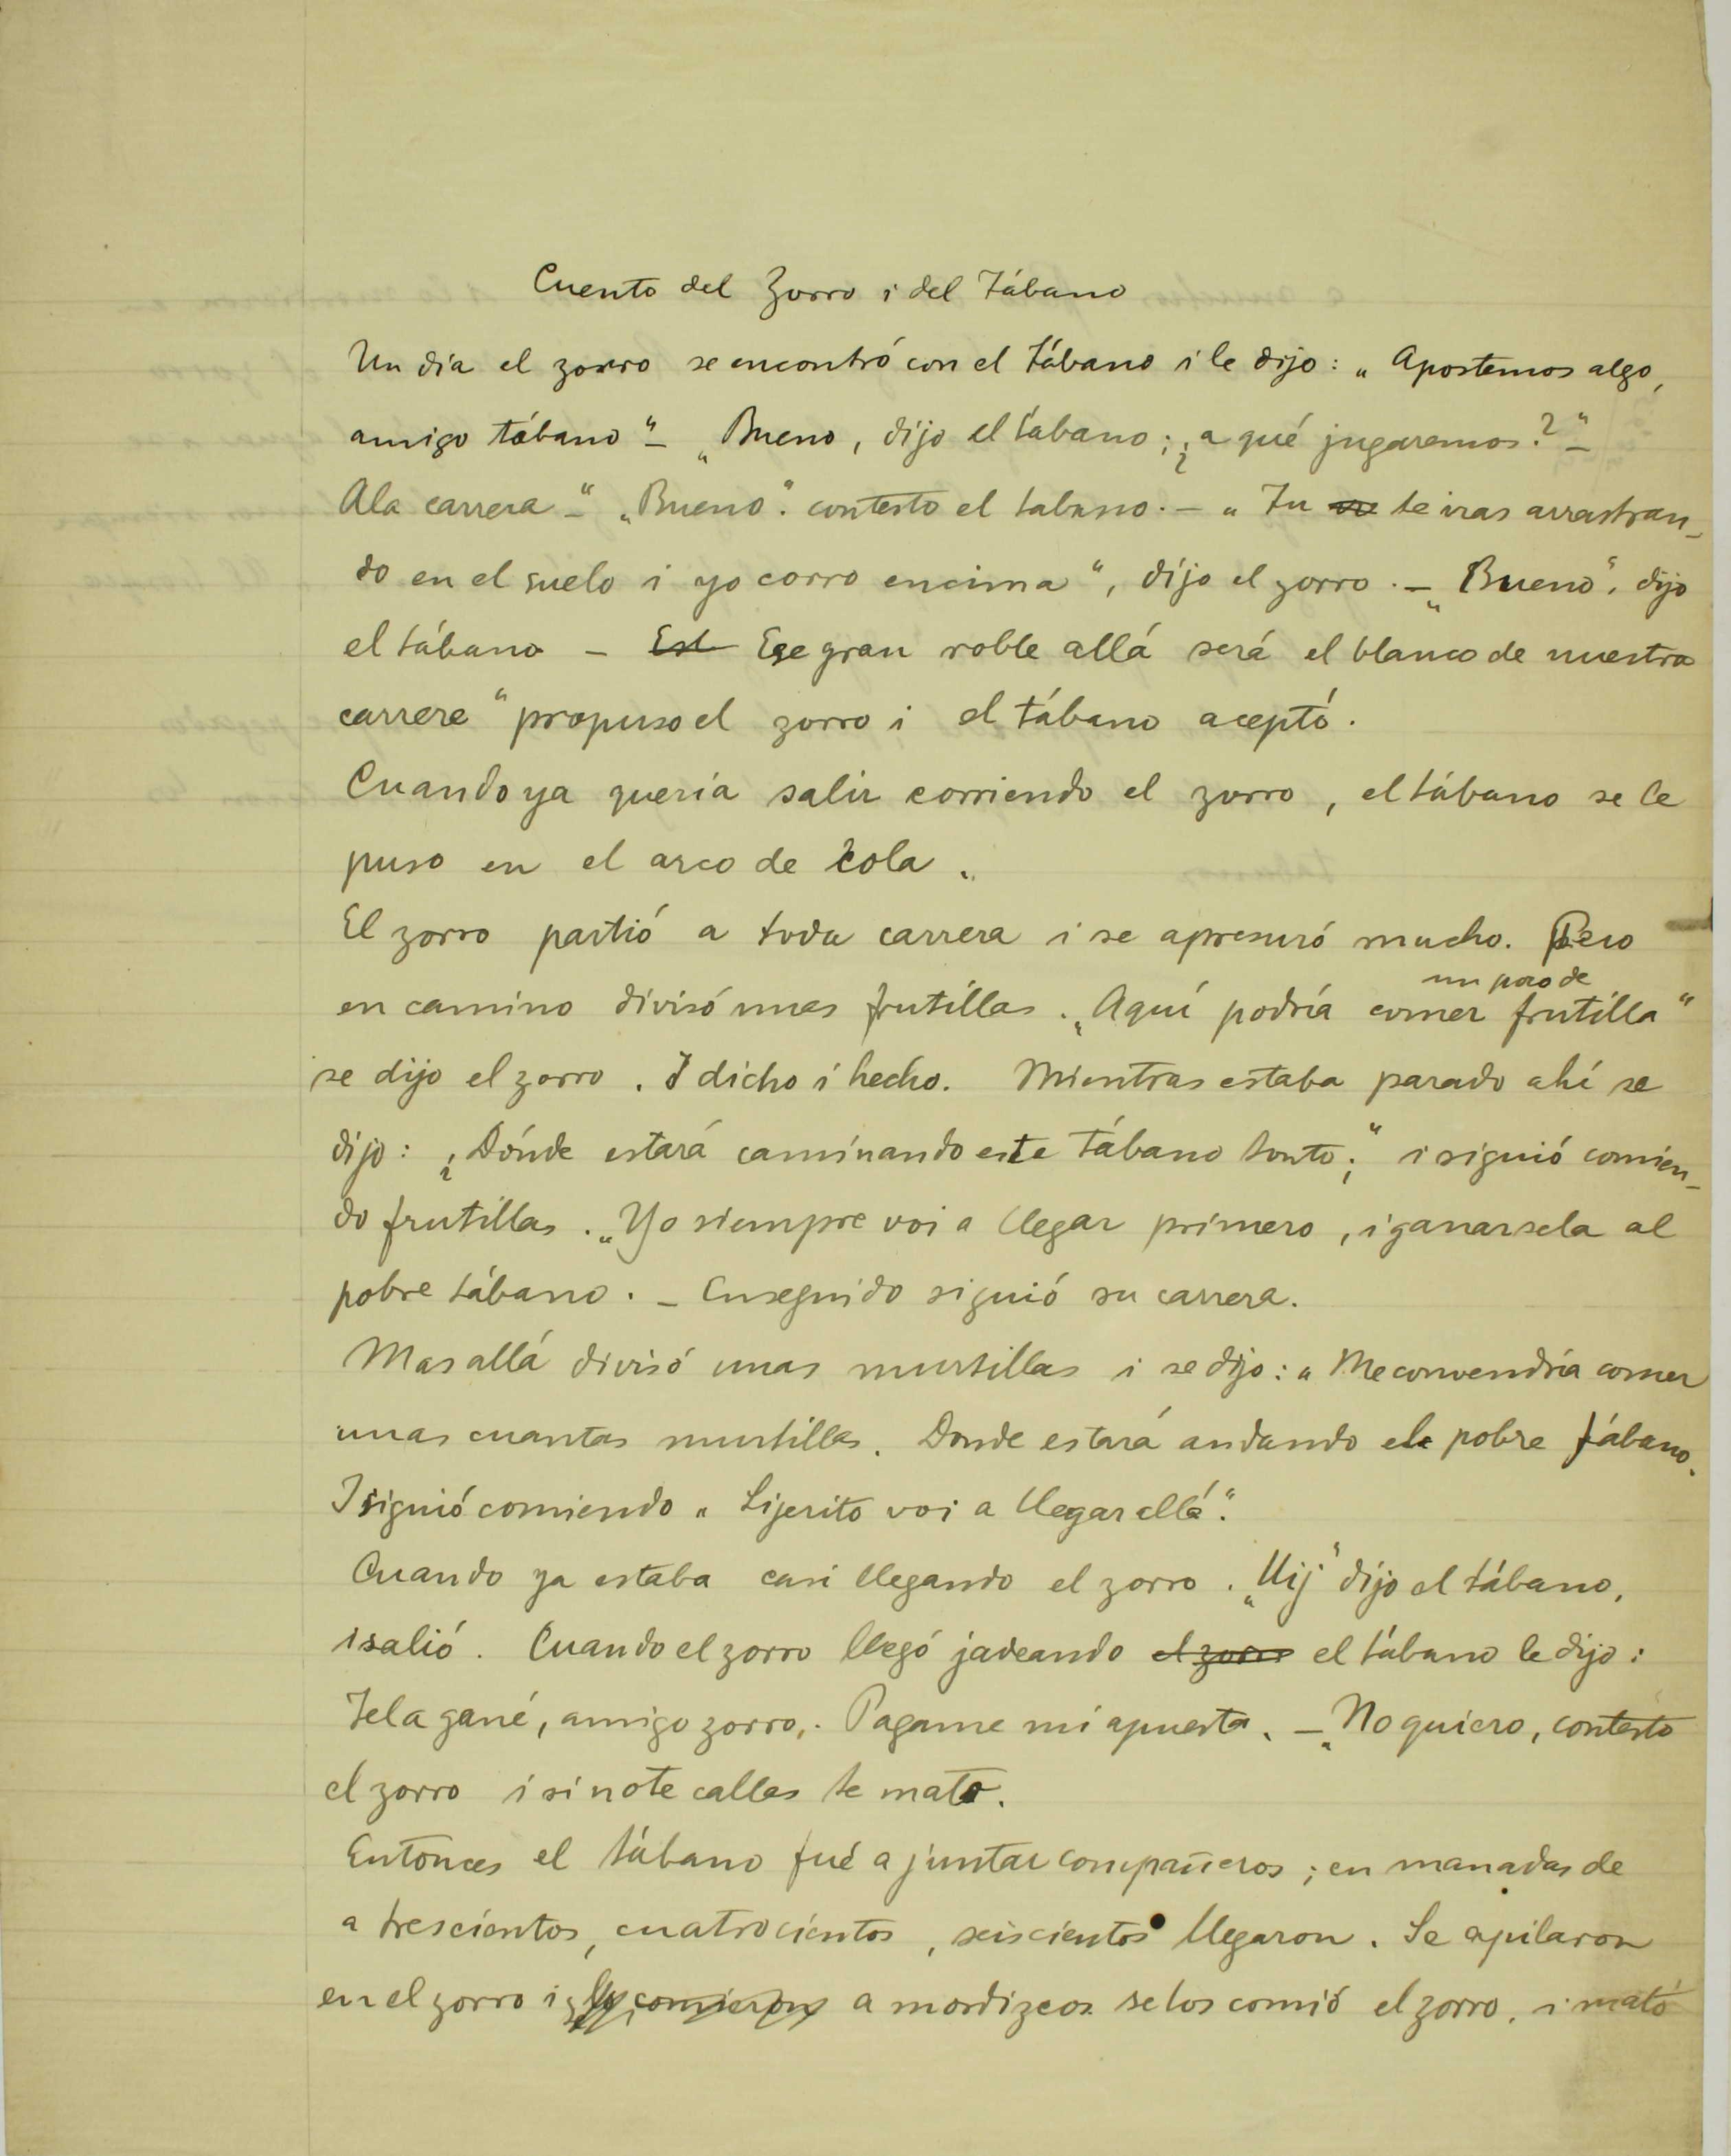 Cuento del Zorro i del Tábano
Un dia el zorro se encontró con el tábano i le dijo: „Apostemos algo,
amigo tábano“ – „Bueno, dijo el tábano; ¿a qué jugaremos?“ –
A la carrera –“ „Bueno“. contesto el tabano. – „Tu te iras arrastran-
do en el suelo i yo corro encima“, dijo el zorro. – „Bueno“, dijo
el tábano – Est Ese gran roble allá será el blanco de nuestra
carrere“ propuso el zorro i el tábano aceptó.
Cuando ya queria salir corriendo el zorro, el tábano se le
puso en el arco de cola.
El zorro partió a toda carrera i se apresuró mucho. Pero
un poco de
en camino divisó unas frutillas. „Aquí podría comer frutilla“
se dijo el zorro. I dicho i hecho. Mientras estaba parado ahí se
dijo: ¿Dónde estará caminando este tábano tonto;“ i siguió comien-
do frutillas. „Yo siempre voi a llegar primero, i ganarsela al
pobre tábano. – Enseguido siguió su carrera.
Mas allá divisó unas murtillas i se dijo: „Me convendría comer
unas cuantas murtillas. Donde estará andando el pobre tábano.
I siguió comiendo „Lijerito voi a llegar allá“.
Cuando ya estaba casi llegando el zorro. „Uij“ dijo el tábano,
i salió. Cuando el zorro llegó jadeando el zorro el tábano le dijo:
Te la gané, amigo zorro,. Pagame mi apuesta. – „No quiero, contesto
el zorro i si no te callas te mato.
Entonces el tábano fué a juntar compañeros; en manadas de
a trescientos, cuatrocientos, seiscientos llegaron. Se apilaron
en el zorro i comieron a mordizcos se los comió el zorro, i mató